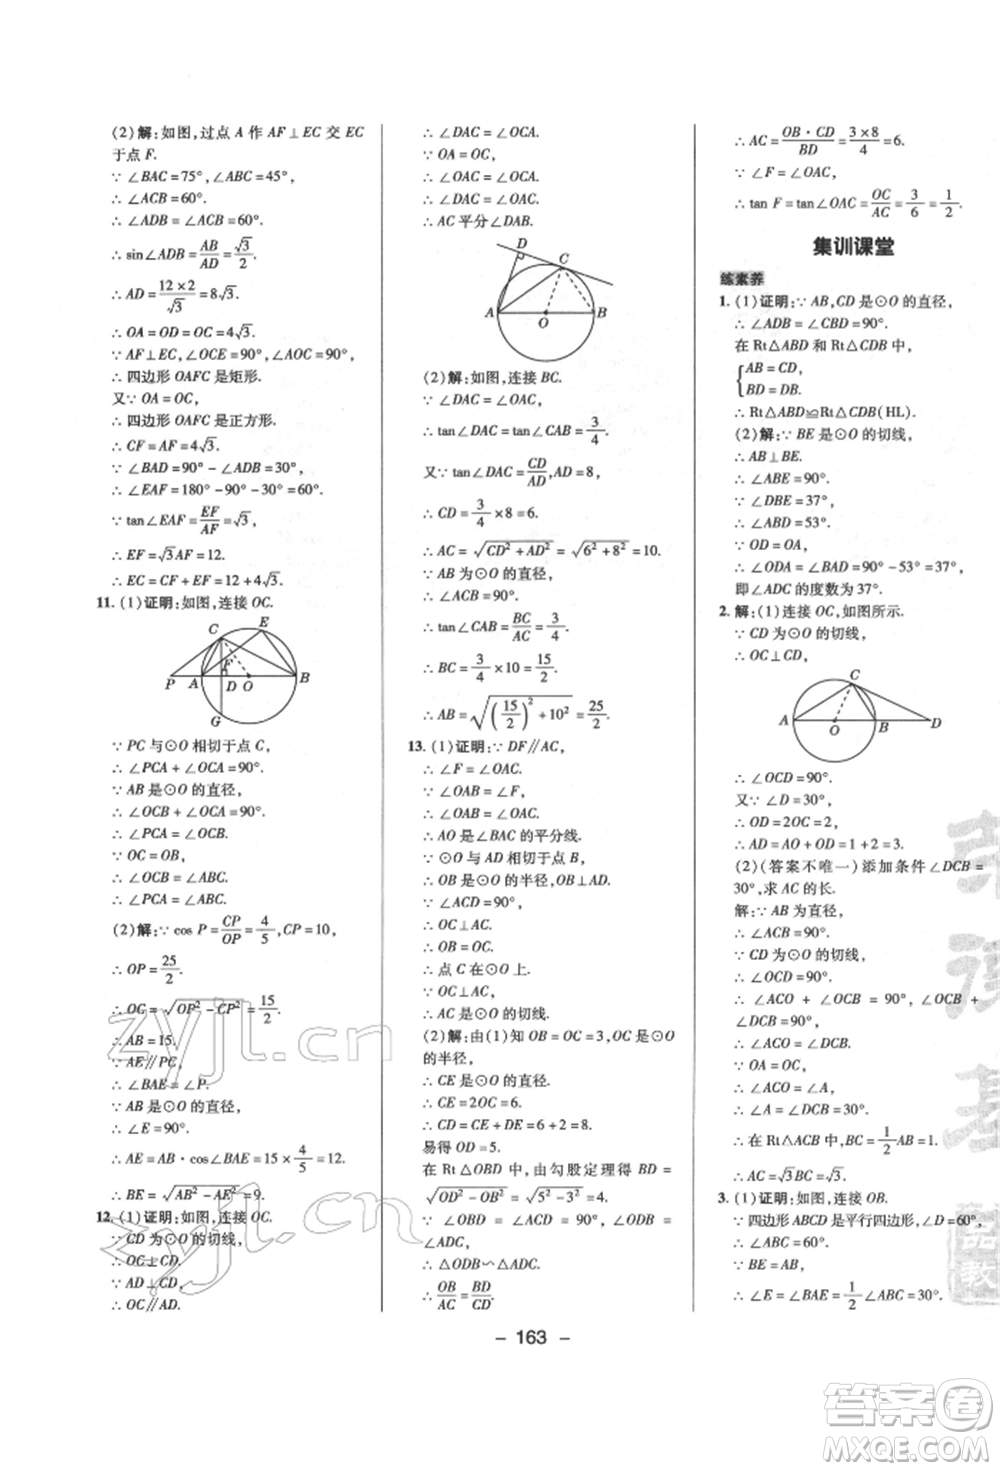 (2)解:如图,过点 A 作 AF⊥EC 交 EC
于点 F.
∵∠BAC=75°,∠ABC=45°,
∴∠ACB=60°.
∴∠ADB=∠ACB=60°.
∴sin∠ADB=AB/AD=√3/2.
∴AD=12×2/√3=8√3.
∴OA=OD=OC=4√3.
∵AF⊥EC,∠OCE=90°,∠AOC=90°.
∴四边形 OAFC 是矩形.
又∵OA=OC,
∴四边形 OAFC 是正方形.
∴CF=AF=4√3.
∵∠BAD=90°-∠ABC=30°,
∴∠EAF=180°-90°-30°=60°.
∵tan∠EAF=EF/AF=√3,
∴EF=√3AF=12.
∴EC=CF+EF=12+4√3.
11. (1)证明:如图,连接 OC.
C E
F
P A D O B
G
∵PC 与⊙O 相切于点 C,
∴∠PCA+∠OCA=90°.
∵AB 是⊙O 的直径,
∴∠OCB+∠OCA=90°.
∴∠PCA=∠OCB.
∵OC=OB,
∴∠OCB=∠ABC.
∴∠PCA=∠ABC.
(2)解:∵cos P=CP/OP=4/5,CP=10,
∴OP=25/2.
∴OC=√(OP²-CP²)=15/2.
∴AB=15.
∵AE∥PC,
∴∠BAE=∠P.
∵AB 是⊙O 的直径,
∴∠E=90°.
∴AE=AB·cos∠BAE=15×4/5=12.
∴BE=√(AB²-AE²)=9.
12. (1)证明:如图,连接 OC.
∵CD 为⊙O 的切线,
∴OC⊥CD.
∵AD⊥CD,
∴OC∥AD.
∴∠DAC=∠OCA.
∵OA=OC,
∴∠OAC=∠OCA.
∴∠DAC=∠OAC.
∴AC 平分∠DAB.
D
C
A O B
(2)解:如图,连接 BC.
∵∠CAB=∠DAC,
∴tan∠DAC=tan∠CAB=3/4.
又∵tan∠DAC=CD/AD,AD=8,
∴CD=3/4×8=6.
∴AC=√(CD²+AD²)=√(6²+8²)=10.
∵AB 为⊙O 的直径,
∴∠ACB=90°.
∴tan∠CAB=BC/AC=3/4.
∴BC=3/4×10=15/2.
∴AB=√((15/2)²+10²)=25/2.
13. (1)证明:∵DF∥AC,
∴∠F=∠OAC.
∵∠OAB=∠F,
∴∠OAB=∠OAC.
∴AO 是∠BAC 的平分线.
∵⊙O 与 AD 相切于点 B,
∴OB 是⊙O 的半径,OB⊥AD.
∵∠ACD=90°,
∴OC⊥AC.
∴OB=OC.
∴点 C 在⊙O 上.
∵OC⊥AC,
∴AC 是⊙O 的切线.
(2)解:由(1)知 OB=OC=3,OC 是⊙O
的半径,
∴CE 是⊙O 的直径.
∴CE=2OC=6.
∴CD=CE+DE=6+2=8.
易得 OD=5.
在 Rt△OBD 中,由勾股定理得 BD=
√(OD²-OB²)=√(5²-3²)=4.
∵∠OBD=∠ACD=90°,∠ODB=∠ADC,
∴△ODB∽△ADC.
∴OB/AC=BD/CD.
∴AC=OB·CD/BD=3×8/4=6.
∵∠F=∠OAC,
∴tan F=tan∠OAC=OC/AC=3/6=1/2.
集训课堂
练素养
1. (1)证明:∵AB,CD 是⊙O 的直径,
∴∠ADB=∠CBD=90°.
在 Rt△ABD 和 Rt△CDB 中,
{AB=CD,
BD=DB.
∴Rt△ABD≌Rt△CDB(HL).
(2)解:∵BE 是⊙O 的切线,
∴AB⊥BE.
∴∠ABE=90°.
∵∠DBE=37°,
∴∠ABD=53°.
∵OD=OA,
∴∠ODA=∠BAD=90°-53°=37°,
即∠ADC 的度数为 37°.
2. 解:(1)连接 OC,如图所示.
∵CD 为⊙O 的切线,
∴OC⊥CD,
C
A O B D
∴∠OCD=90°.
又∵∠D=30°,
∴OD=2OC=2,
∴AD=AO+OD=1+2=3.
(2)(答案不唯一)添加条件∠DCB=
30°,求 AC 的长.
解:∵AB 为直径,
∴∠ACB=90°.
∵CD 为⊙O 的切线,
∴∠OCD=90°.
∴∠ACO+∠OCB=90°,∠OCB+
∠DCB=90°.
∴∠ACO=∠DCB.
∵OA=OC,
∴∠ACO=∠A,
∴∠A=∠DCB=30°.
∴在 Rt△ACB 中,BC=1/2AB=1.
∴AC=√3BC=√3.
3. (1)证明:如图,连接 OB.
∵四边形 ABCD 是平行四边形,∠D=60°,
∴∠ABC=60°.
∵BE=AB,
∴∠E=∠BAE=1/2∠ABC=30°.
- 163 -
zyjl.cn
zyjl.cn
答案卷
MXQE.COM